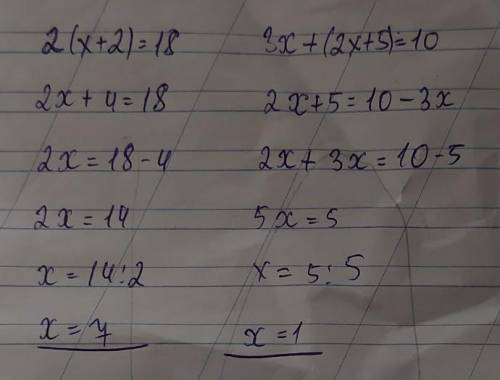 2(x+2)=18
2x+4=18
2x=18-4
2x=14
x=14:2
x=7
3x+(2x+5)=10
2x+5=10-3x
2x+3x=10-5
5x=5
x=5:5
x=1